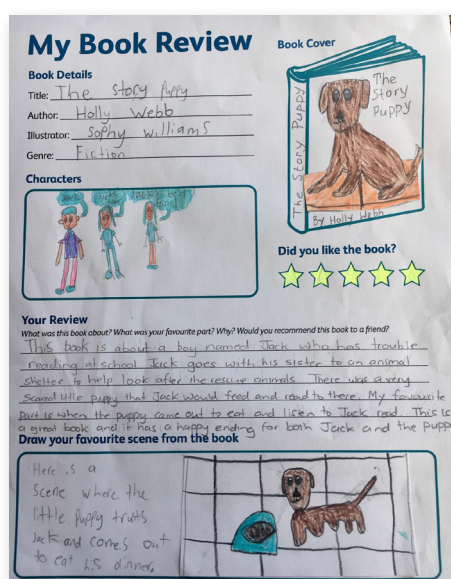 My Book Review
Book Cover
Book Details
Title: The story Puppy
Author: Holly Webb
Illustrator: Sophy Williams
Genre: Fiction
The Story Puppy
The
Story
Puppy
By Holly Webb
Characters
Did you like the book?
Your Review
What was this book about? What was your favourite part? Why? Would you recommend this book to a friend?
This book is about a boy named Jack who has trouble
reading at school Jack goes with his sister to an animal
shelter to help look after the rescue animals There was a very
Scared little puppy that Jack would feed and read to there. My favourite
Part is when the puppy came out to eat and listen to Jack read. This is
a great book and it has a happy ending for both Jack and the pupp
Draw your favourite scene from the book
Here is a
Scene where the
little Puppy truts
Jack and comes out
to eat his dinner.